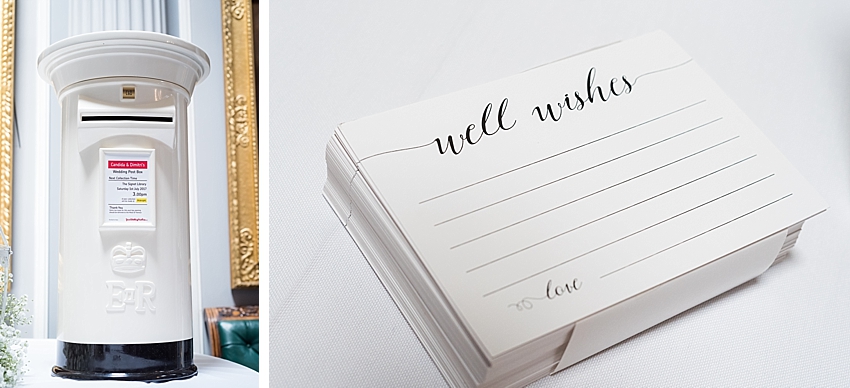 Candida & Dimitri's
Wedding Post Box
Next Collection Time
The Signet Library
Saturday 1st July 2017
3.00pm
Thank You
E II R
well wishes
love